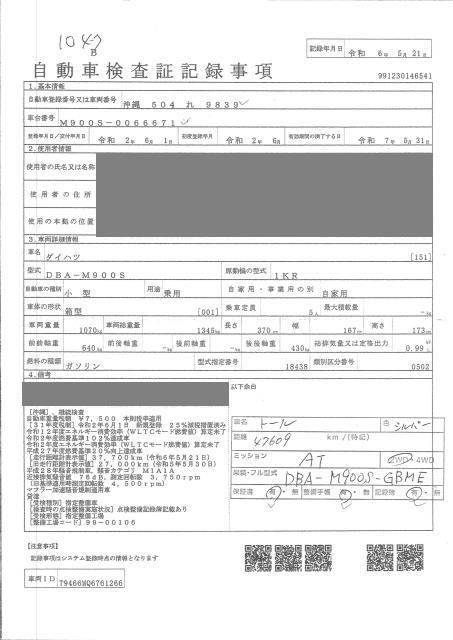 1047
B
記録年月日 令和 6年 5月 21日
自動車検査証記録事項
991230146541
1.基本情報
自動車登録番号又は車両番号 沖縄 504 れ 9839
車台番号 M900S-0066671
登録年月日/交付年月日 令和 2年 6月 1日 初度登録年月 令和 2年 6月 有効期間の満了する日 令和 7年 5月 31日
2.使用者情報
使用者の氏名又は名称
使用者の住所
使用の本拠の位置
3.車両詳細情報
車名 ダイハツ [151]
型式 DBA-M900S 原動機の型式 1KR
自動車の種別 小型 用途 乗用 自家用・事業用の別 自家用
車体の形状 箱型 [001] 乗車定員 5人 最大積載量 -kg
車両重量 1070kg 車両総重量 1345kg 長さ 370cm 幅 167cm 高さ 173cm
前前軸重 640kg 前後軸重 -kg 後前軸重 -kg 後後軸重 430kg 総排気量又は定格出力 0.99 kW L
燃料の種類 ガソリン 型式指定番号 18438 類別区分番号 0502
4.備考
以下余白
[沖縄]、継続検査
自動車重量税額 ¥7,500 本則税率適用
[31年度税制]令和2年6月1日 新規登録 25%減税措置済み
令和12年度エネルギー消費効率(WLTCモード燃費値)算定未了
令和2年度燃費基準102%達成車
令和2年度エネルギー消費効率(WLTCモード燃費値)算定未了
平成27年度燃費基準20%向上達成車
[走行距離計表示値]37,700km(令和6年5月21日)
[旧走行距離計表示値]27,000km(令和5年5月30日)
平成28年騒音規制車、騒音カテゴリ M1A1A
近接排気騒音値 76dB、測定回転数 3,750rpm
(旧基準適用時測定回転数 4,500rpm)
マフラー加速騒音規制適用車
[受検種別]指定整備車
[検査時の点検整備実施状況]点検整備記録簿記載あり
[受検形態]指定整備工場
[整備工場コード]99-00106
車名 トール 色 シルバー
距離 47609 km/(特記)
ミッション AT 2WD・4WD
架装・フル型式 DBA-M900S-GBME
保証書 有・無 整備手帳 有・無 記録簿 有・無
[注意事項]
記録事項はシステム登録時点の情報となります
車両ID 79466MQ6761266